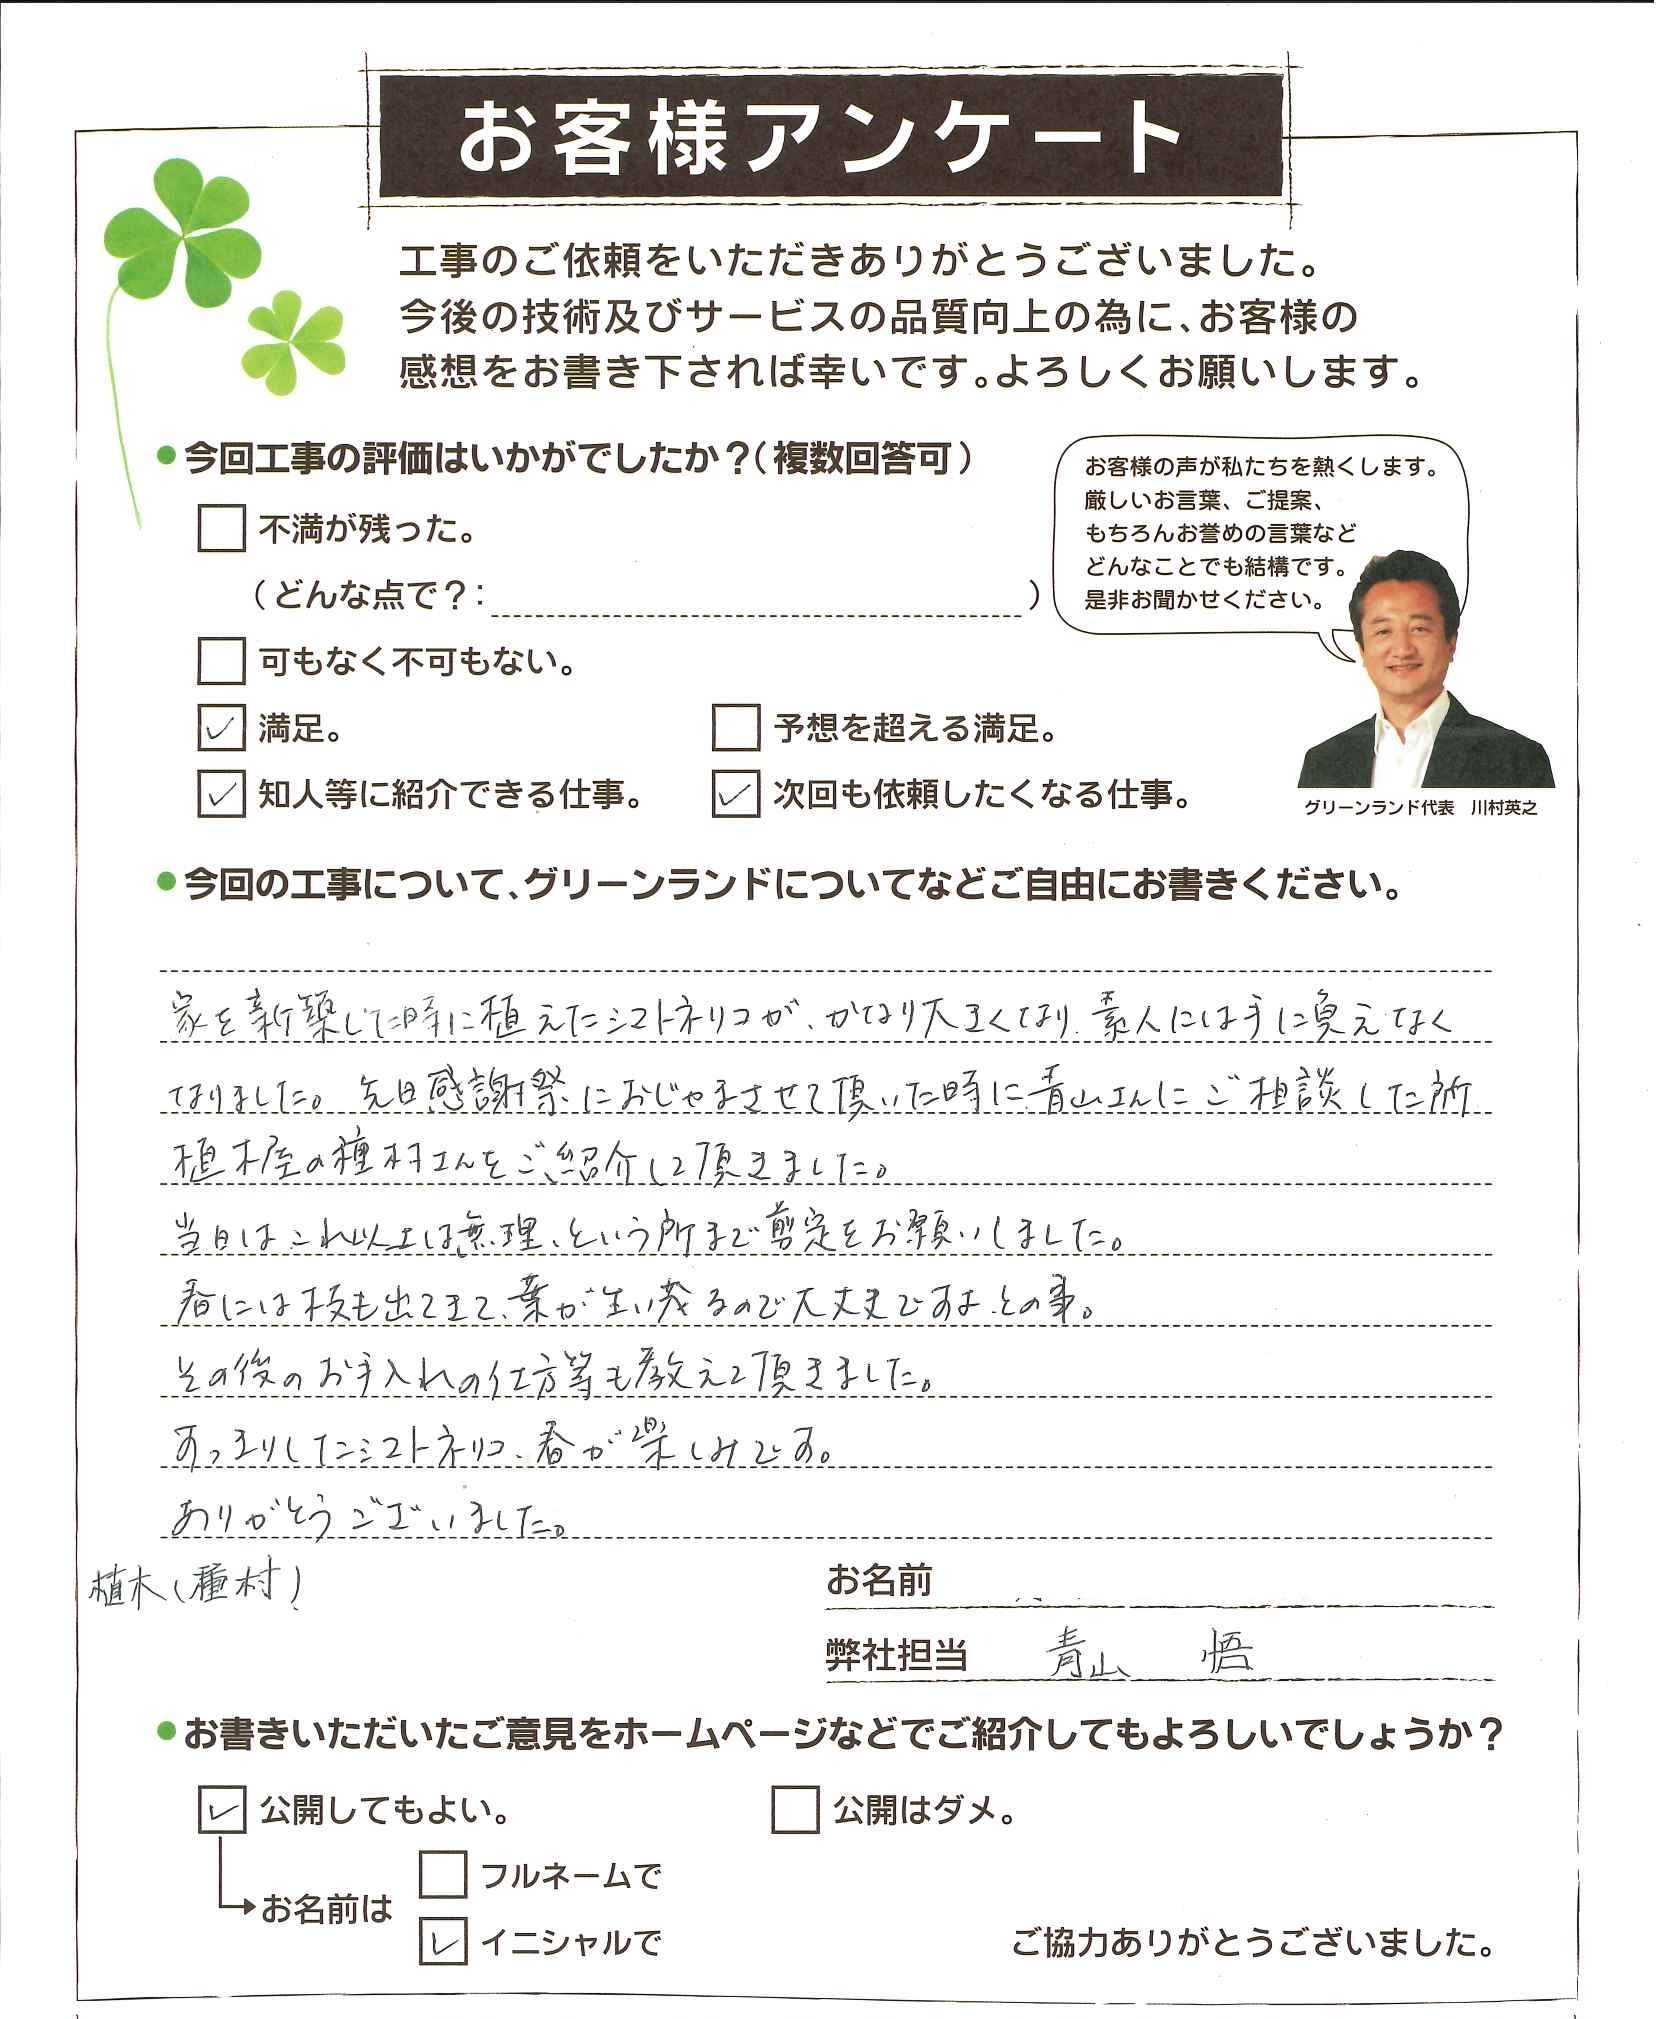 お客様アンケート
工事のご依頼をいただきありがとうございました。
今後の技術及びサービスの品質向上の為に、お客様の
感想をお書き下されば幸いです。よろしくお願いします。
●今回工事の評価はいかがでしたか？（複数回答可）
お客様の声が私たちを熱くします。
厳しいお言葉、ご提案、
もちろんお誉めの言葉など
どんなことでも結構です。
是非お聞かせください。
不満が残った。
（どんな点で？：　）
可もなく不可もない。
✓ 満足。
予想を超える満足。
✓ 知人等に紹介できる仕事。
✓ 次回も依頼したくなる仕事。
グリーンランド代表　川村英之
●今回の工事について、グリーンランドについてなどご自由にお書きください。
家を新築した時に植えたシマトネリコが、かなり大きくなり、素人には手に負えなく
なりました。先日感謝祭におじゃまさせて頂いた時に青山さんにご相談した所
植木屋の種村さんをご紹介して頂きました。
当日はこれ以上は無理、という所まで剪定をお願いしました。
春には枝も出てきて、葉が生い茂るので大丈夫ですよ、との事。
その後のお手入れの仕方等も教えて頂きました。
すっきりしたシマトネリコ、春が楽しみです。
ありがとうございました。
植木（種村）
お名前
弊社担当　青山　悟
●お書きいただいたご意見をホームページなどでご紹介してもよろしいでしょうか？
✓ 公開してもよい。
公開はダメ。
お名前は
フルネームで
✓ イニシャルで
ご協力ありがとうございました。